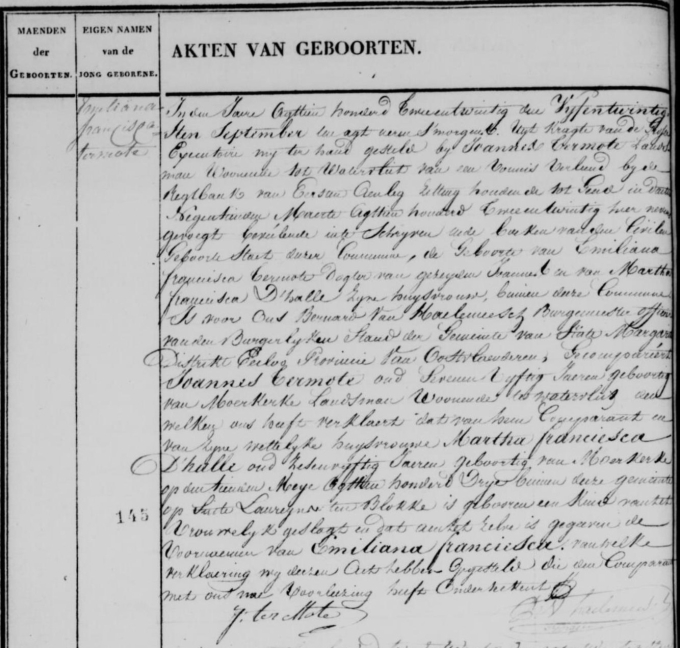 MAENDEN
der
GEBOORTEN.
EIGEN NAMEN
van de
JONG GEBORENE.
AKTEN VAN GEBOORTEN.
Emiliana
francisca
termote
In den Jaere Agthien honderd Tweentwintig den Vyfentwintig
sten September ten agt uren s'morgents. Uyt kragte van de
Executoire my ter hand gesteld by Joannes Termote Lands
man Woonende tot Watervliet van een Vonnis Verleend by de
Regtbank van Eersten Aenleg Zitting houdende tot Gend in date
Negentienden Meerte Agthien honderd Tweentwintig hier neven
gevoegt bevelende inte Schryven inde boeken van den Civilen
Geboorte Staet dezer Commune, de Geboorte van Emiliana
francisca termote Dogter van gezeyden Joannes en van Martha
francisca D'halle Zyne huysvrouw, binnen deze Commune
Is voor Ons Bernard Van Haelemeesch Burgemeester officier
van den Burgerlyken Stand der Gemeente van Sinte Margar
Distrikt Eecloo Provincie van Oostvlaenderen, Gecompareert
Joannes termote oud Seven en Vyftig Jaeren geboortig
van Moerkerke Landsman Woonende te watervliet den
welken ons heeft verklaert dat van hem Comparant en
van zyne wettelyke huysvrouwe Martha francisca
D'halle oud zesenvyftig Jaeren geboortig van Moerkerke
op den tienden Meye Agthien honderd Drye binnen deze gemeente
op Sinte Laureyns ten Blokke is geboren een Kind van het
145
Vrouwelyk geslagt en dat aen het zelve is gegeven de
Voornaemen van Emiliana francisca. van welke
verklaering wy dezen Act hebben Opgesteld die den Comparant
met ons naer Voorlezing heeft Onderteekent
J. ter Mote